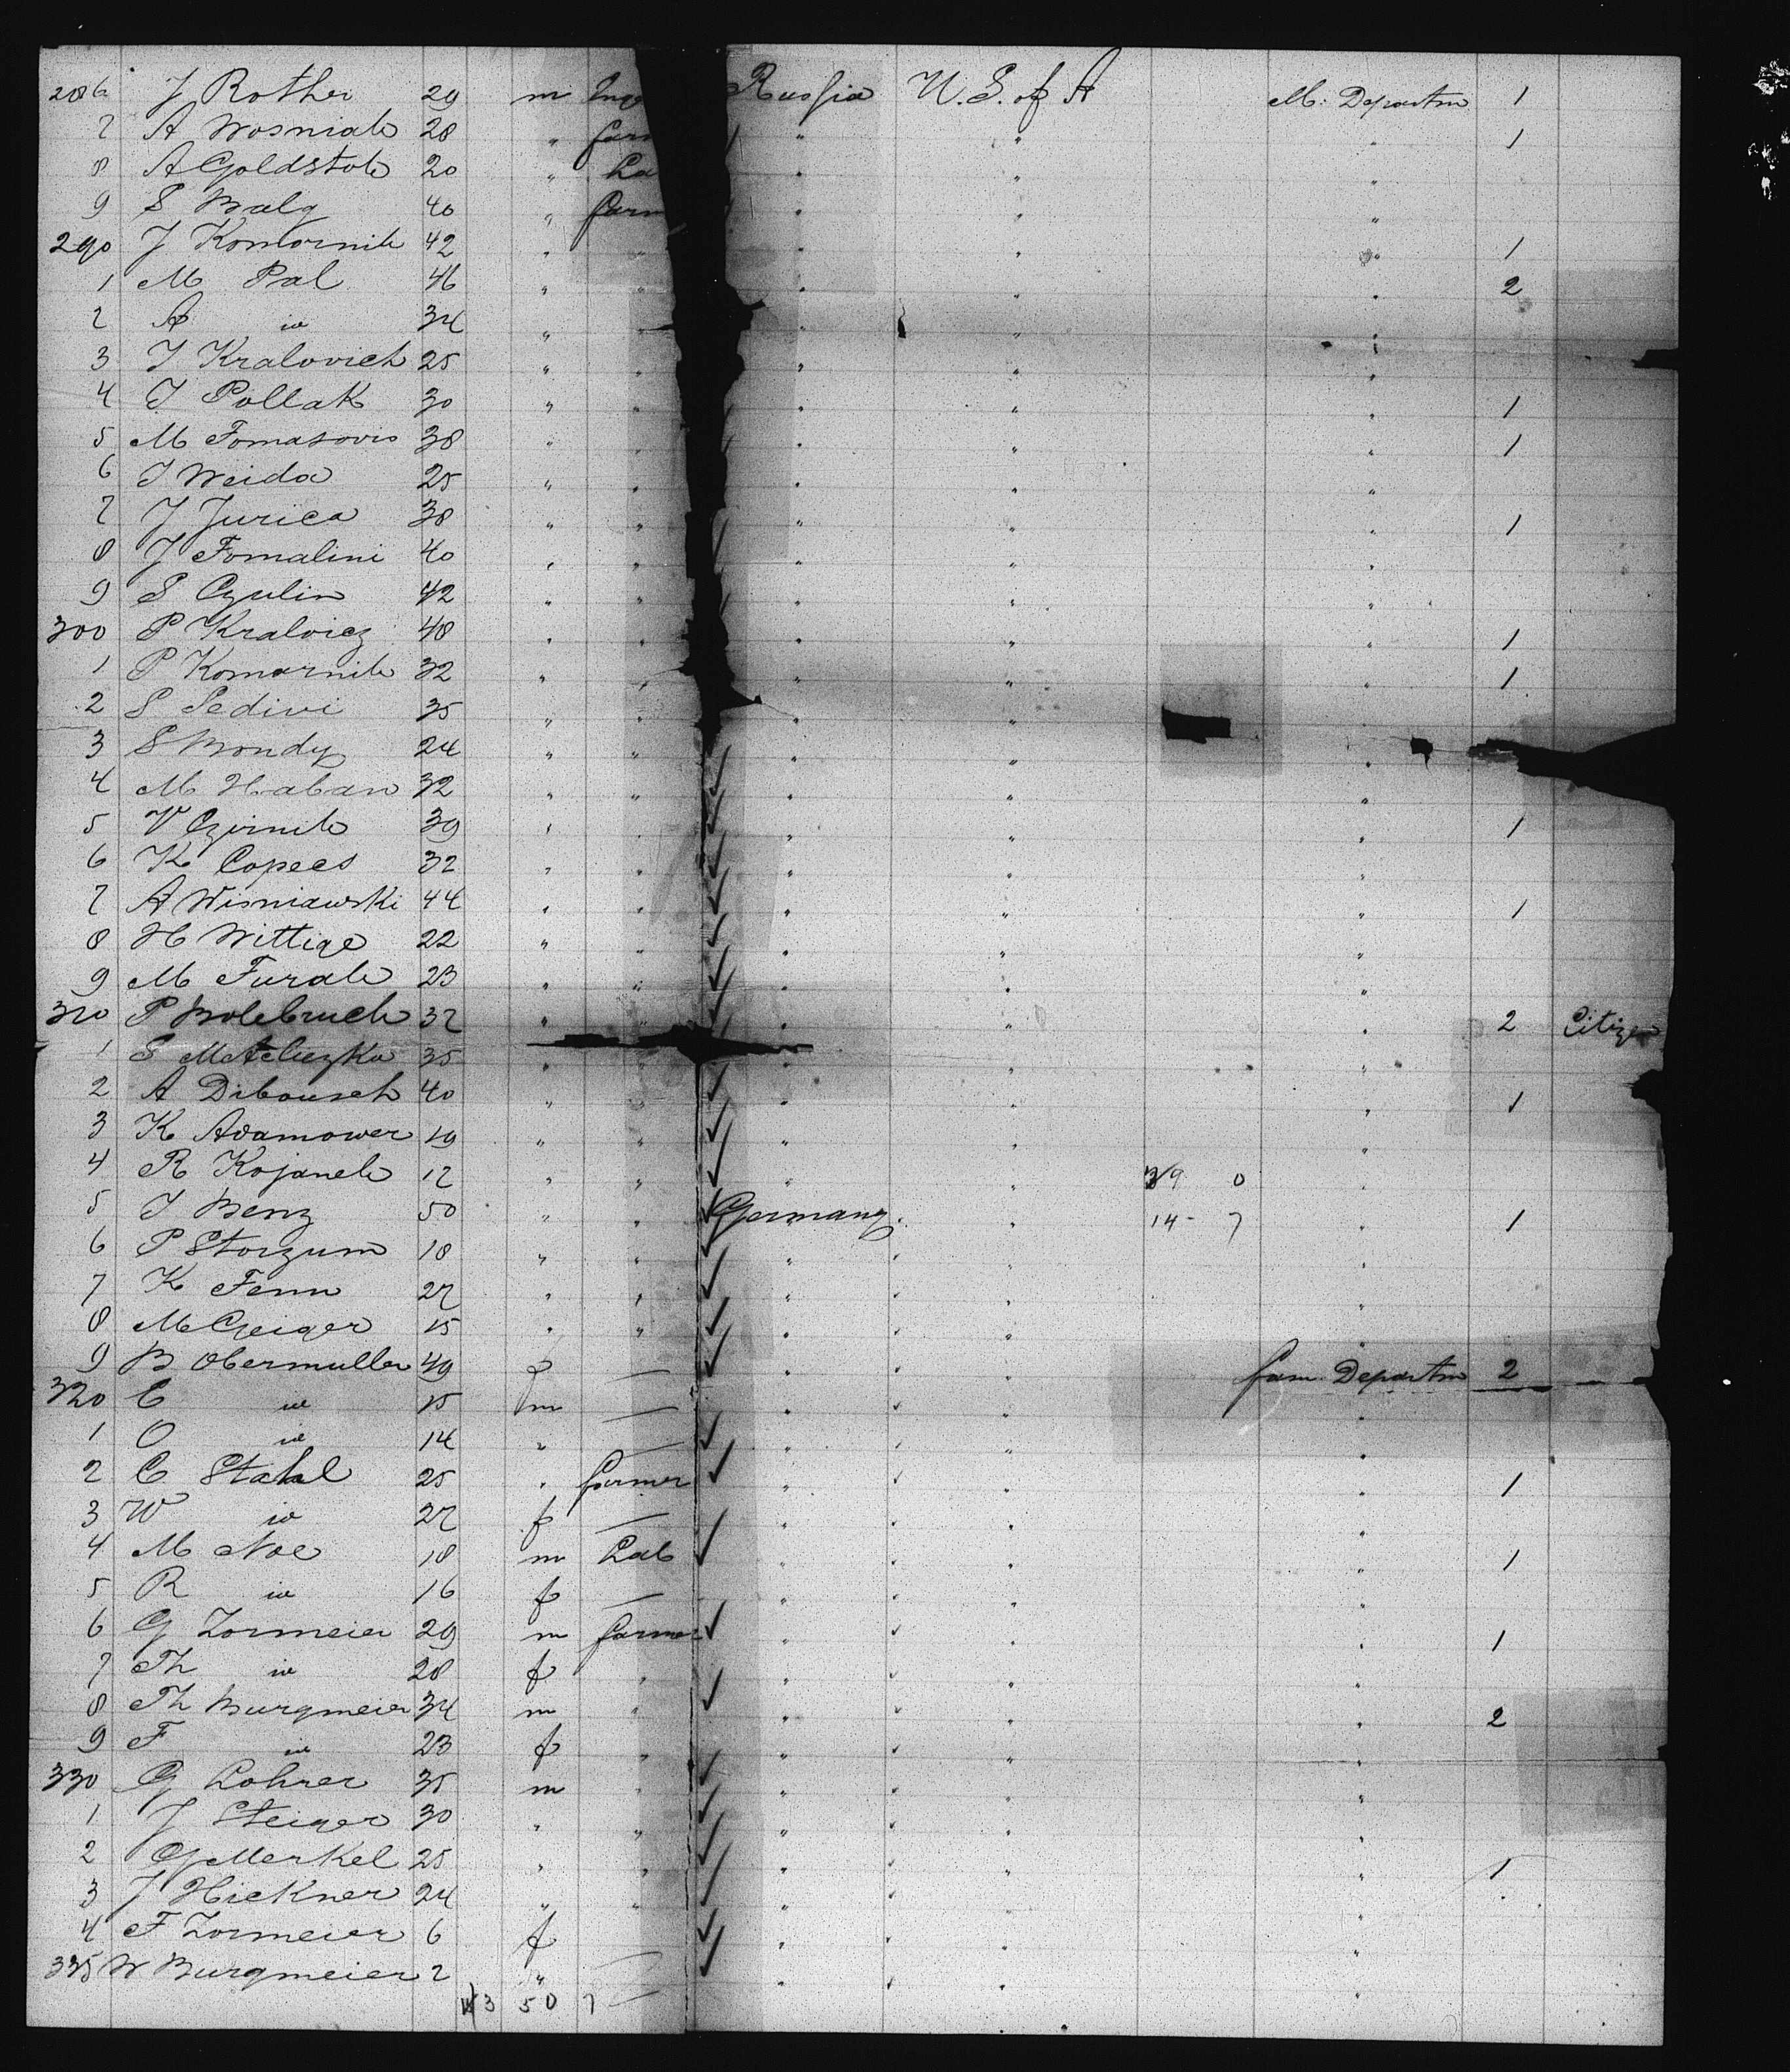 286 J Rother 29 m Russia U.S. of A M. Departm 1
7 A Wosniak 28 " " " " 1
8 A Goldstob 20 " " " "
9 S Balg 40 " " " "
290 J Komornik 42 " " " " " 1
1 M Pal 46 " " " " " 2
2 A " 34 " " " "
3 J Kralovich 25 " " " " "
4 J Pollak 30 " " " " " 1
5 M Tomasovis 38 " " " " " 1
6 J Weida 25 " " " " "
7 J Jurica 38 " " " " " 1
8 J Tomalini 40 " " " " "
9 S Czulin 42 " " " " "
300 P Kraloicz 48 " " " " " 1
1 P Komarnik 32 " " " " " 1
2 S Sedivi 35 " " " " "
3 S Bondy 24 " " " " "
4 M Haban 32 " " " " "
5 V Czirnik 39 " " " " " 1
6 K Copecs 32 " " " " "
7 A Wisniawski 44 " " " " " 1
8 H Wittige 22 " " " " "
9 M Turak 23 " " " " "
310 P Bolebruch 32 " " " " " 2 Citizen
1 S Mateliczka 35 " " " " "
2 A Dibousch 40 " " " " " 1
3 K Adamower 19 " " " " "
4 R Kojanek 12 " " " " 39 0 "
5 J Benz 50 " " Germany " 14 - 7 " 1
6 P Storzum 18 " " " " "
7 K Fenn 22 " " " " "
8 M Geiger 15 " " " " "
9 B Obermuller 49 f — " " fam. Departm 2
320 C " 15 m — " " "
1 O " 14 " — " " "
2 C Stahl 25 " farmer " " " 1
3 W " 22 f — " " "
4 M Noe 18 m Lab " " " 1
5 R " 16 f — " " "
6 G Zormeier 29 m farmer " " " 1
7 Th " 28 f " " " "
8 Th Burgmeier 34 m " " " " 2
9 F " 23 f " " " "
330 G Lohrer 35 m " " " "
1 J Steiger 30 " " " " "
2 G Merkel 25 " " " " " 1
3 J Hickner 24 " " " " "
4 F Zormeier 6 f — " " "
335 W Burgmeier 2 " — " " "
3 50 7